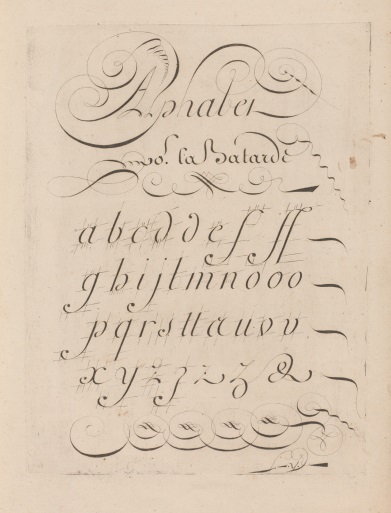 Alphabet
po.r la Bâtarde
a b c d d e f ff
g h i j l m n o o o
p q r s t t a u v v
x y z z z z &